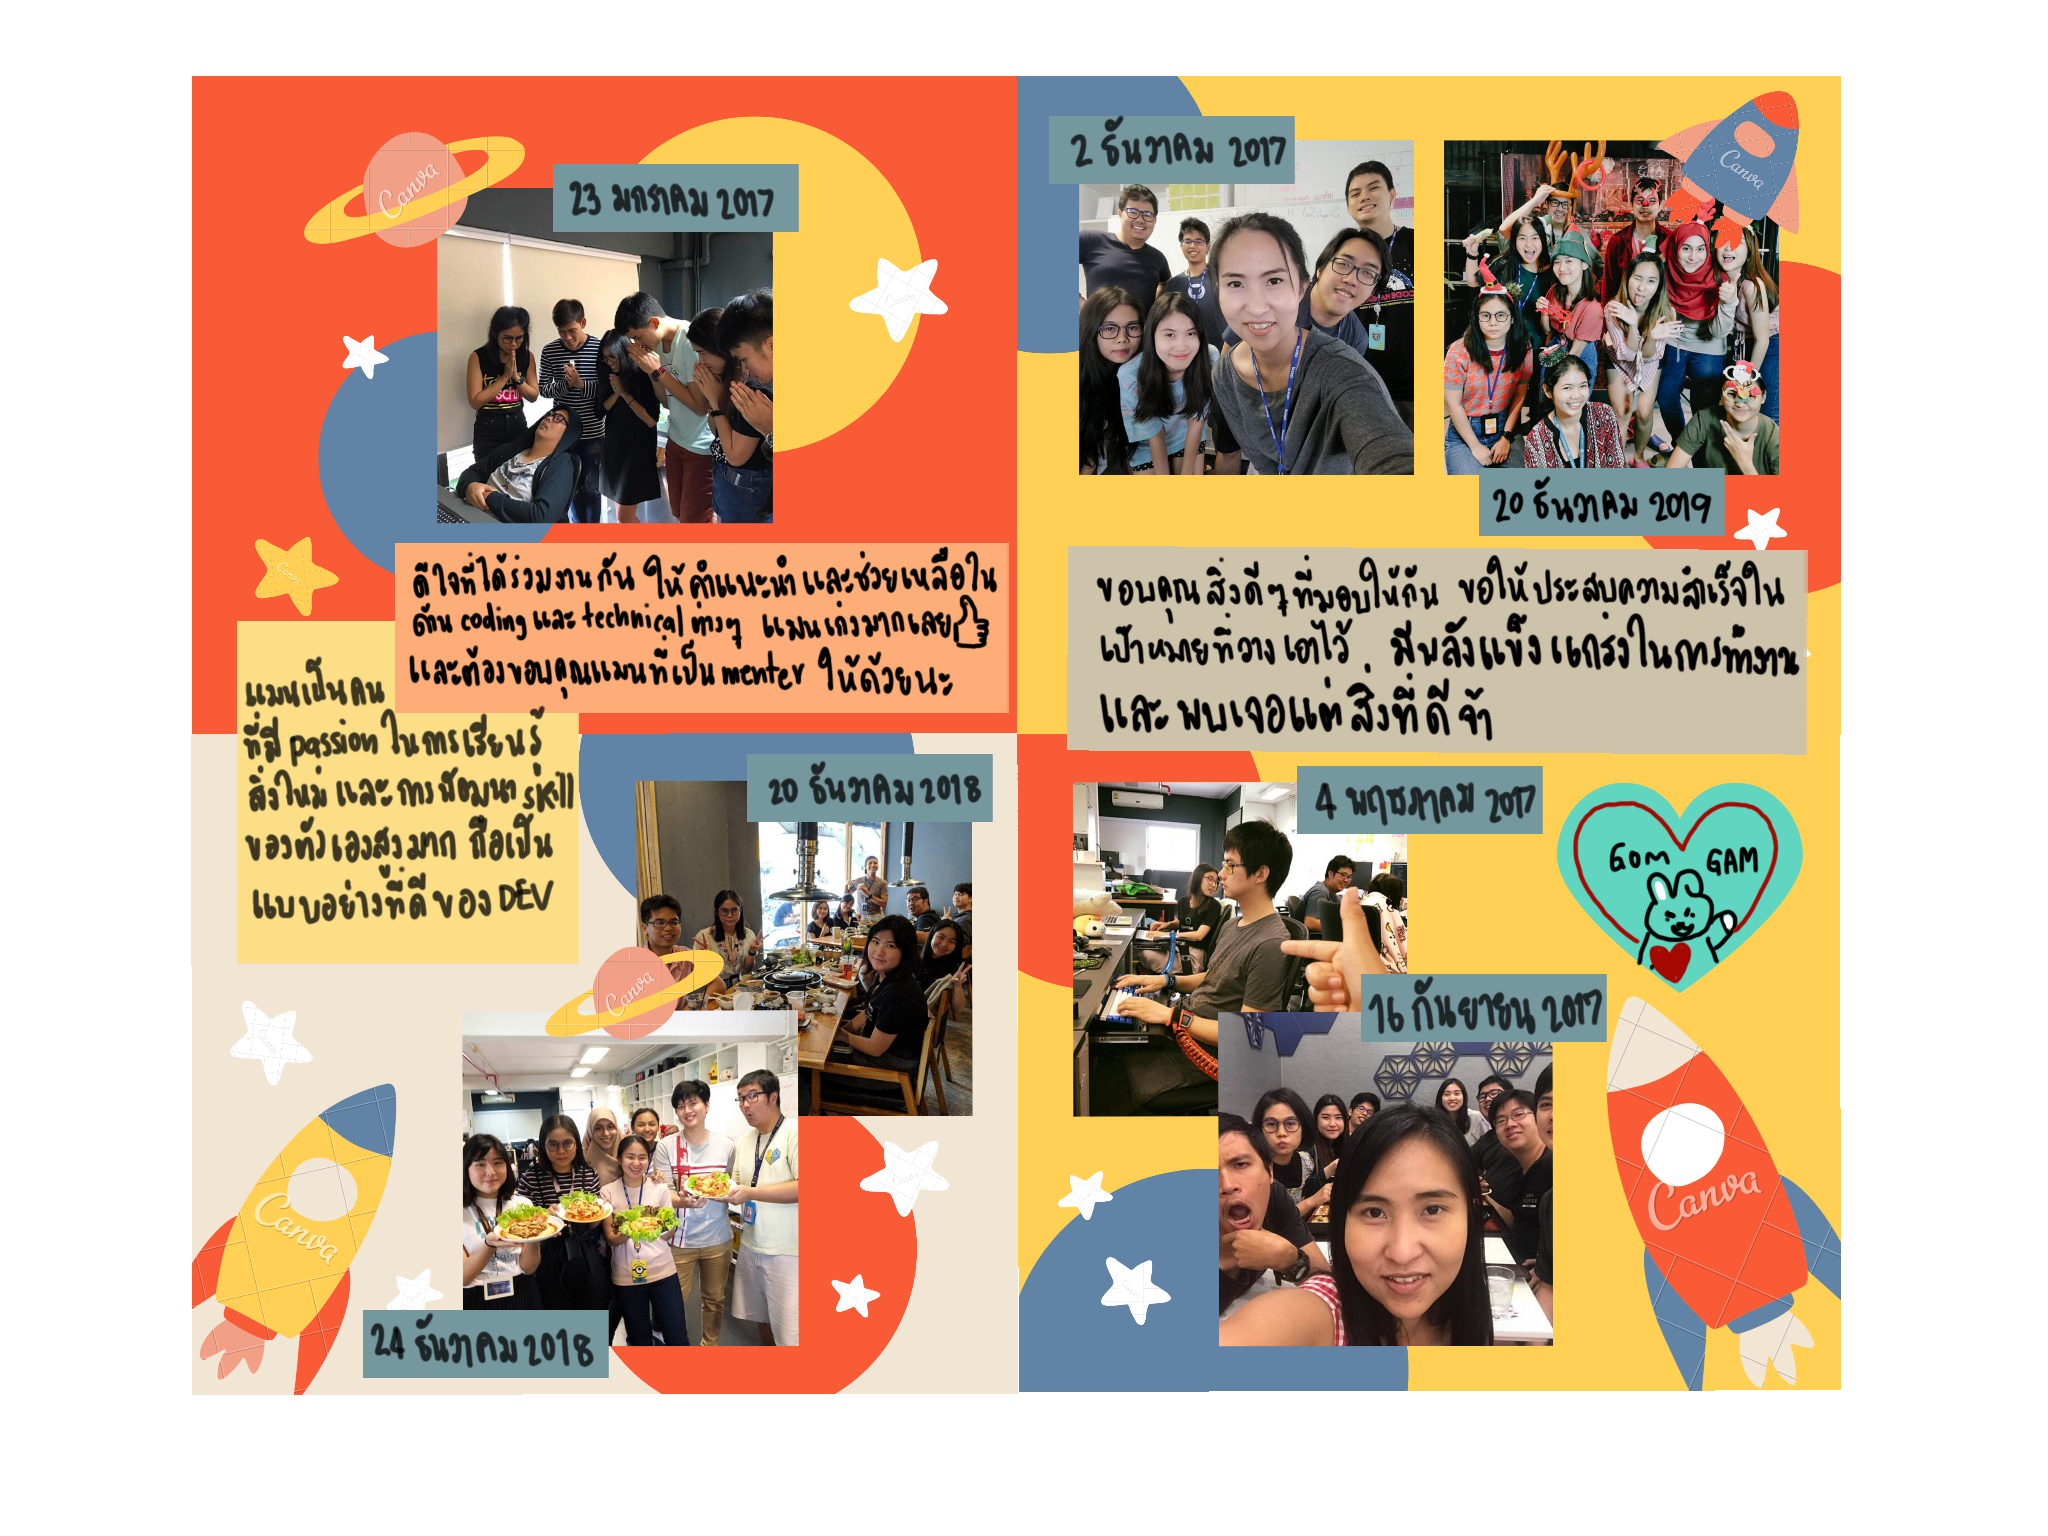 23 มกราคม 2017
ดีใจที่ได้ร่วมงานกัน ให้คำแนะนำและช่วยเหลือใน
ด้าน coding และ technical ต่างๆ แมนเก่งมากเลย
และต้องขอบคุณแมนที่เป็น menter ให้ด้วยนะ
แมนเป็นคน
ที่มี passion ในการเรียนรู้
สิ่งใหม่ และการพัฒนา skill
ของตัวเองสูงมาก ถือเป็น
แบบอย่างที่ดีของ DEV
20 ธันวาคม 2018
24 ธันวาคม 2018
2 ธันวาคม 2017
20 ธันวาคม 2019
ขอบคุณสิ่งดีๆที่มอบให้กัน ขอให้ประสบความสำเร็จใน
เป้าหมายที่วางเอาไว้ มีพลังแข็งแกร่งในการทำงาน
และพบเจอแต่สิ่งที่ดีจ้า
4 พฤษภาคม 2017
GOM GAM
16 กันยายน 2017
Canva
Canva
Canva
Canva
Canva